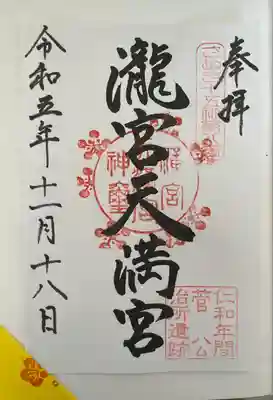 奉拝
瀧宮天満宮
令和五年十一月十八日
仁和年間
菅公
治所遺跡